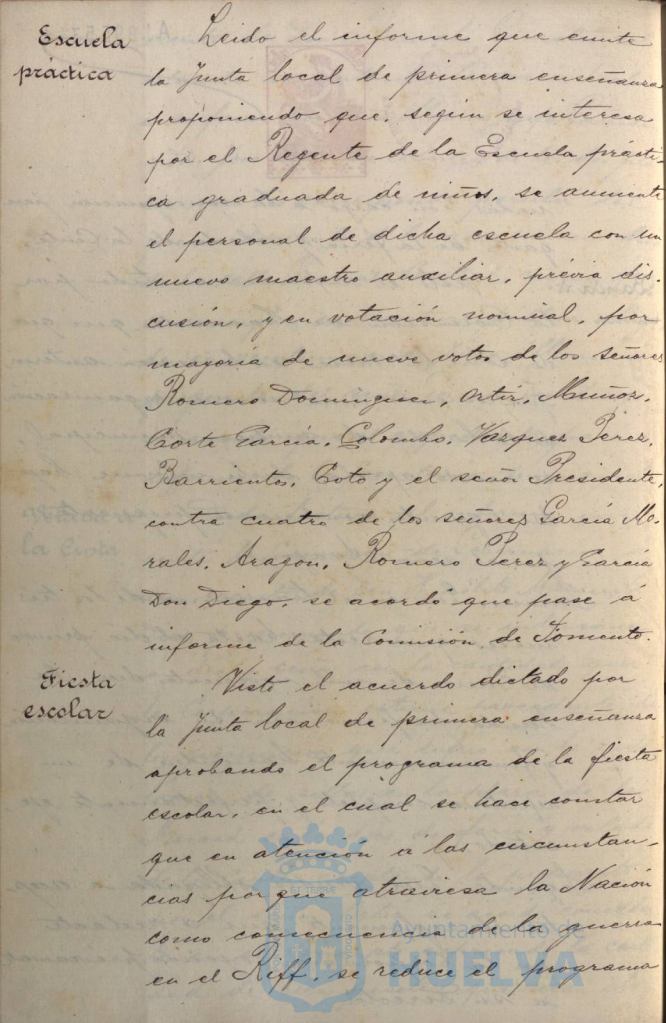 Escuela
práctica
Leido el informe que emite
la Junta local de primera enseñanza
proponiendo que, según se interesa
por el Regente de la Escuela prácti-
ca graduada de niños, se aumente
el personal de dicha escuela con un
nuevo maestro auxiliar, prévia dis-
cusión, y en votación nominal, por
mayoria de nueve votos de los señores
Romero Dominguez, Ortiz, Muñoz,
Corte García, Colombo, Vazquez Pérez,
Barrientos, Coto y el señor Presidente,
contra cuatro de los señores García Mo-
rales, Aragon, Romero Perez y García
Don Diego, se acordó que pase á
informe de la Comisión de Fomento.
Fiesta
escolar
Visto el acuerdo dictado por
la Junta local de primera enseñanza
aprobando el programa de la fiesta
escolar, en el cual se hace constar
que en atención á las circunstan-
cias porque atraviesa la Nación
como consecuencia de la guerra
en el Riff, se reduce el programa
Ayuntamiento de
HUELVA